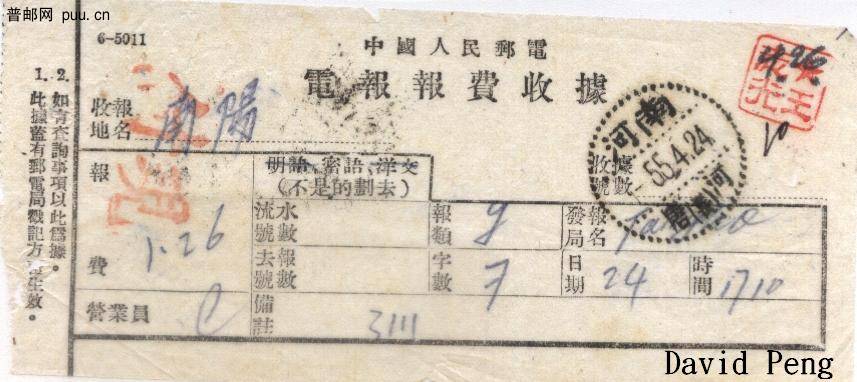 普邮网 puu.cn
6-5011
中國人民郵電
電報報費收據
1. 此據蓋有郵電局戳記方有生效。
2. 如有查詢事項以此爲據。
收報地名 南陽
收據號數
10
河南
55.4.24
報費 1.26
明語、密語、洋文
(不是的劃去)
流水號數
報類 y
發報局名
去報號數
字數 7
日期 24
時間 1710
營業員 C
備註 3111
David Peng